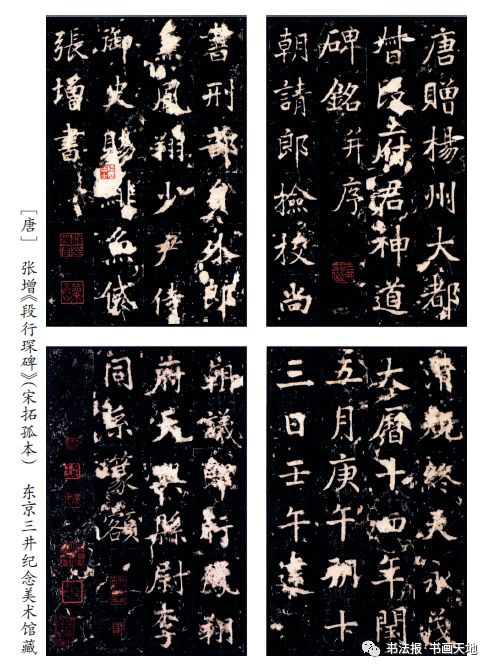 唐贈楊州大都
督段府君神道
碑銘并序
朝請郎撿校尚
書刑部員外郎
兼鳳翔少尹侍
御史賜緋魚袋
張增書
清規終天永茂
大曆十四年閏
五月庚午朔十
三日壬午建
朝議郎行鳳翔
府天興縣尉李
同系篆額
[唐] 张增《段行琛碑》(宋拓孤本) 东京三井纪念美术馆藏
书法报·书画天地